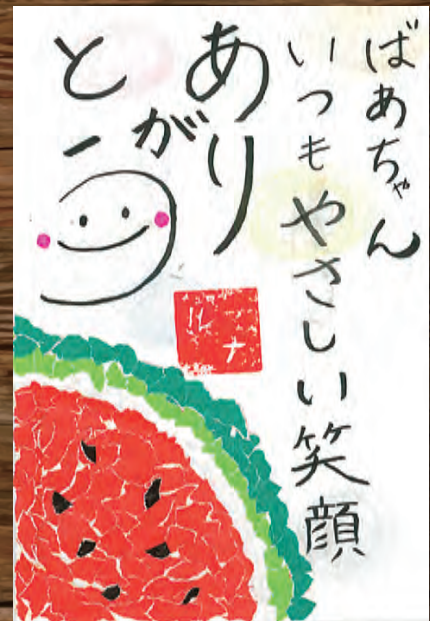 ばあちゃん
いつもやさしい笑顔
あり
がとう
ルナ